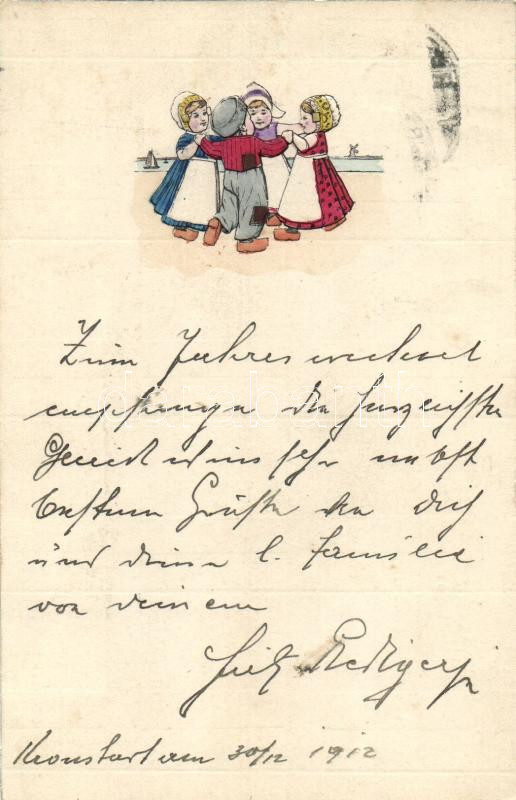 Zum Jahreswechsel
empfange die herzlichsten
Glückwünsche nebst
besten Grüßen an Dich
und deine l. Familie
von deinem
Kronstadt am 30/12 1912